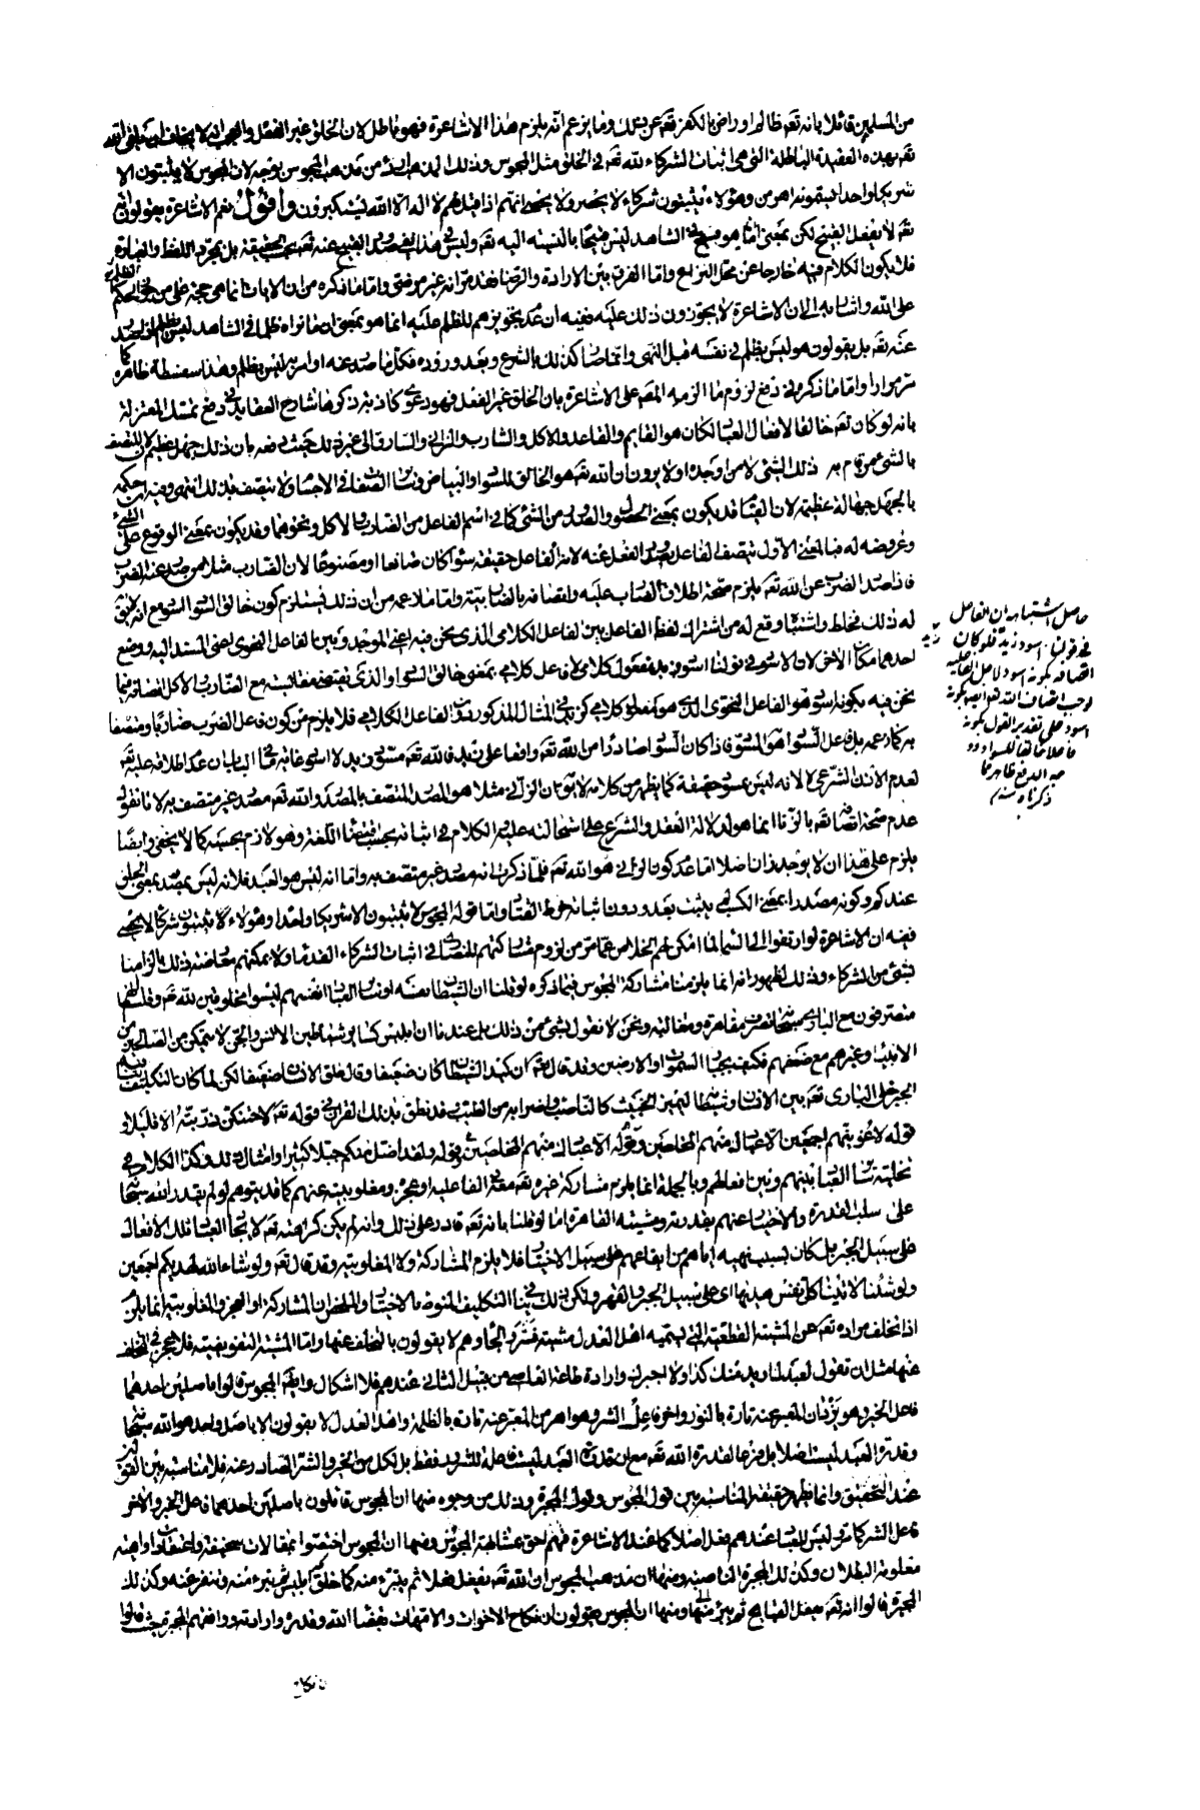 من المسلمين قائلا بانه تعالى ظالم او راض بالكفر تعالى عن ذلك وما يزعم انه يلزم هذا الاشاعرة فهو باطل لان الخلق غير الفعل والعجب انه لا يخاف ان يلقى الله
تعه بهذه العقيدة الباطلة التي هي اثبات الشركاء لله تعه في الخلق مثل المجوس وذلك المذهب اردء من مذهب المجوس بوجه لان المجوس لا يثبتون الا
شريكا واحدا يسمونه اهرمن وهؤلاء يثبتون شركاء لا يحصر ولا يحصى انهم اذا قيل لهم لا اله الا الله يستكبرون واقول نعم الاشاعرة يقولون انه
تعه لا يفعل القبيح لكن بمعنى ان ما هو قبيح في الشاهد ليس قبيحا بالنسبة اليه تعه وليس في هذا نفى صدور القبيح عنه تعه بحسب الحقيقة بل بمجرد اللفظ والعبارة
فلا يكون الكلام فيه خارجا عن محل النزاع واما الفرق بين الارادة والرضا فقد مر انه غير موفق واما ما ذكره من ان الايات انما هي حجة على من يجوز الظلم
على الله واشباهه الى ان الاشاعرة لا يجوزون ذلك عليه ففيه ان عدم تجويزهم للظلم عليه انما هو بمعنى ان ما نراه ظلما في الشاهد ليس بظلم اذا صدر
عنه تعه بل يقولون هو ليس بظلم في نفسه قبل النهى وانما صار كذلك بالشرع وبعد وروده فكل ما صدر عنه او امر به ليس بظلم وهذا سفسطة ظاهرة كما
مر مرارا واما ما ذكره في دفع لزوم ما الزمه المصه على الاشاعرة بان الخلق غير الفعل فهو دعوى كاذبة ذكرها شارح العقايد في دفع تمسك المعتزلة
بانه لو كان تعه خالقا لافعال العباد لكان هو القايم والقاعد والاكل والشارب والزاني والسارق الى غير ذلك حيث دفعه بان ذلك جهل عظيم لان المتصف
بالشئ من قام به ذلك الشئ لا من اوجده اولا يرون ان الله تعه هو الخالق للسواد والبياض وساير الصفات في الاجسام ولا يتصف بذلك انتهى وفيه ان حكمه
بالجهل جهالة عظيمة لان القيام قد يكون بمعنى الحصول والصدور من الشئ كما في اسم الفاعل من الضارب والاكل ونحوهما وقد يكون بمعنى الوقوع على الشئ
وعروضه له فبالمعنى الاول يتصف الفاعل بصدور الفعل عنه لانه الفاعل حقيقة سواء كان صانعا او مصنوعا لان الضارب مثلا من صدر عنه الضرب
فاذا صدر الضرب عن الله تعه يلزم صحة اطلاق الضارب عليه واتصافه بالضاربية واما ما زعمه من ان ذلك يستلزم كون خالق السواد اسود مع انه لا يق
له ذلك فخلط واشتباه وقع له من اشتراك لفظ الفاعل بين الفاعل الكلامي الذي نحن فيه اعنى الموجد وبين الفاعل النحوى اعنى المسند اليه ووضع
احدهما مكان الاخر لان الاسود في قولنا اسود زيد مفعول كلامي لا فاعل كلامي بمعنى خالق السواد والذي يقتضى مقايسته مع الضارب والاكل اتصافه فيما
نحن فيه بكونه اسود هو الفاعل النحوى الذي هو مفعول كلامي كزيد في المثال المذكور دون الفاعل الكلامي فلا يلزم من كون فاعل الضرب ضاربا ومتصفا
به كما زعمه بل فاعل السواد هو المسود فاذا كان السواد صادرا من الله تعه واقعا على زيد فالله تعه مسود وزيد لا اسود غاية ما في الباب ان عدم اطلاقه عليه تعه
لعدم الاذن الشرعى لا لانه ليس بمسود حقيقة كما يظهر من كلامه لا يق ان الزاني مثلا هو المصدر المتصف بالمصدر والله تعه مصدر غير متصف به لانا نقول
عدم صحة اتصافه تعه بالزنا انما هو لدلالة العقل والشرع على استحالته عليه والكلام في اثباته بحسب مقتضى اللغة وهو لازم بحسبه كما لا يخفى وايضا
يلزم على هذا ان لا يوجد زان اصلا اما عدم كون الزاني هو الله تعه فلما ذكر انه مصدر غير متصف به واما انه ليس هو العبد فلانه ليس بمصدر بمعنى الخلق
عندكم وكونه مصدرا بمعنى الكسب لم يثبت بعد ودون اثباته خرط القتاد واما قوله المجوس لا يثبتون الا شريكا واحدا وهؤلاء يثبتون شركاء لا يحصى
ففيه ان الاشاعرة لو ارتقوا الى السماء لما امكن لهم الخلاص عما مر من لزوم مشاركتهم للنصارى في اثبات الشركاء القدماء ولا يمكنهم معارضة ذلك بالزامنا
بشئ من الشركاء وذلك لظهور انه انما يلزمنا مشاركة المجوس فيما ذكره لو قلنا ان الشيطان نفسه او ذوات العباد انفسهم ليسوا مخلوقين لله تعه وقلنا انهم
متصرفون مع الباري سبحانه تصرف مقاهرة ومغالبة ونحن لا نقول بشئ من ذلك بل عندنا ان ابليس كسائر شياطين الانس والجن لا يتمكن من الصالحين من
الانبياء وغيرهم مع ضعفهم فكيف بجبار السموات والارضين وقد قال تعه ان كيد الشيطان كان ضعيفا وقال خلق الانسان ضعيفا لكن لما كان التكليف ينافيه
الجبر خلى البارى تعه بين الانسان وشيطانه ليميز الخبيث كالناصب واضرابه من الطيب قد نطق بذلك القران في قوله تعه لاحتنكن ذريته الا قليلا و
قوله لاغوينهم اجمعين الا عبادك منهم المخلصين وقوله ولقد اضل منكم جبلا كثيرا وامثال ذلك وكذا الكلام في
تخليته سائر العباد بينهم وبين افعالهم وبالجملة انما يلزم مشاركة غيره تعه معه في الفاعلية او عجزه ومغلوبيته عنهم كما قد يتوهم لو لم يقدر الله سبحانه
على سلب القدرة والاختيار عنهم بقدرته ومشيته القاهرة اما لو قلنا بانه تعه قادر على ذلك وانه لم يكن كراهته تعه لايجاد العباد تلك الافعال
على سبيل الجبر بل كان بسبب نهيه اياهم من ايقاعهم على سبيل الاختيار فلا يلزم المشاركة ولا المغلوبية وقد قال تعه ولو شاء الله لهديكم اجمعين
ولو شئنا لاتينا كل نفس هديها اى على سبيل الجبر والقهر ولكن ذلك ينافي التكليف المنوط بالاختيار والملخص ان المشاركة او العجز والمغلوبية انما يلزم
اذا تخلف مراده تعه عن المشية القطعية التي يسميه اهل العدل مشية قسر والجاء وهم لا يقولون بالتخلف عنها واما المشية التفويضية فلا عجز في التخلف
عنها مثل ان تقول لعبدك اريد منك كذا ولا اجبرك وارادة طاعة العاصي من قبيل الثاني عندهم فلا اشكال وايضا المجوس قالوا باصلين احدهما
فاعل الخير وهو يزدان المعبر عنه تارة بالنور واخر فاعل الشر وهو اهرمن المعبر عنه تارة بالظلمة واهل العدل لا يقولون الا باصل واحد هو الله سبحانه
وقدرة العبد ليست اصلا بل فرعا لقدرة الله تعه مع ان قدرة العبد ليست فاعلة للشرور فقط بل لكل من الخير والشر الصادر عنه فلا مناسبة بين القولين
عند التحقيق وانما يظهر حقيقة المناسبة بين قول المجوس وقول المجبرة وذلك من وجوه منها ان المجوس قائلون باصلين احدهما فاعل الخير والاخر
فاعل الشر كما مر وليس للعباد عندهم فعل اصلا كما عند الاشاعرة فهم احق بمشابهة المجوس ومنها ان المجوس اختصوا بمقالات سخيفة واعتقادات واهية
معلومة البطلان وكذلك المجبرة الناصبة ومنها ان مذهب المجوس ان الله تعه يفعل فعلا ثم يتبرء منه كما خلق ابليس ثم تبرء منه وتنفر عنه وكذلك
المجبرة قالوا انه تعه يفعل القبايح ثم يتبرء منها ومنها ان المجوس يقولون ان نكاح الاخوات والامهات بقضاء الله وقدره وارادته ووافقهم المجبرة حيث قالوا
حاصل اشتباهه ان الفاعل
في قولنا اسود زيد
فلو كان
اتصافه بكونه اسود لاجل
لوجب اتصاف الله تعه ايضا بكونه
اسود على تقدير القول بكونه
فاعلا خالقا للسواد و
وجه الدفع ظاهر مما
ذكرناه منه
ان نكاح